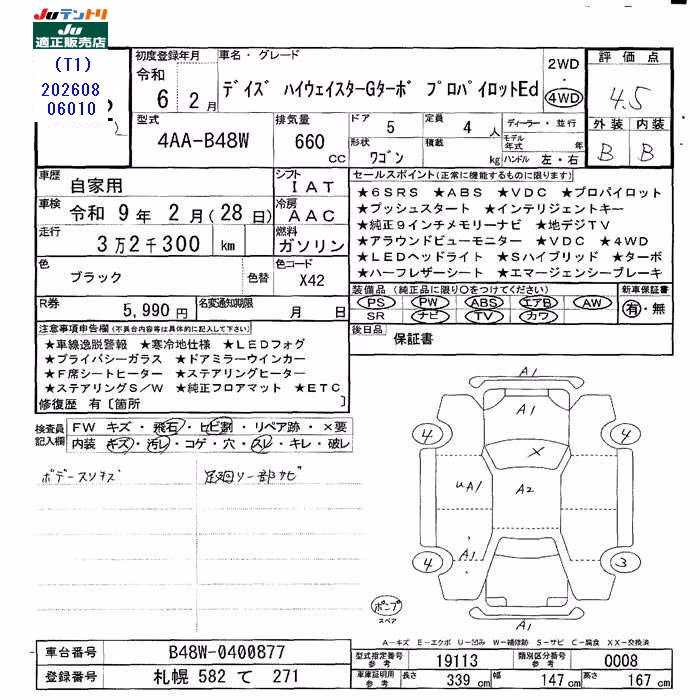 Juテントリ
Ju
適正販売店
(T1)
202608
06010
初度登録年月
令和 6年 2月
車名・グレード
デイズ ハイウェイスターGターボ プロパイロットEd
2WD
・
4WD
評価点
4.5
外装 内装
B B
型式
4AA-B48W
排気量
660 CC
ドア 5
定員 4 人
形状 ワゴン
積載 kg
ディーラー・並行
モデル年式 年
ハンドル 左・右
車歴 自家用
シフト IAT
車検 令和 9年 2月(28日)
冷房 AAC
走行 3万2千300 km
燃料 ガソリン
色 ブラック
色替
色コード X42
R券 5,990円
名変通知期限 月 日
セールスポイント(正常に機能するものに限ります)
★6SRS ★ABS ★VDC ★プロパイロット
★プッシュスタート ★インテリジェントキー
★純正9インチメモリーナビ ★地デジTV
★アラウンドビューモニター ★VDC ★4WD
★LEDヘッドライト ★Sハイブリッド ★ターボ
★ハーフレザーシート ★エマージェンシーブレーキ
装備品 (純正品に限り○をつけてください)
PS PW ABS エアB AW
SR ナビ TV カワ
新車保証書
有・無
後日品
保証書
注意事項申告欄(不具合内容等は具体的に記入して下さい)
★車線逸脱警報 ★寒冷地仕様 ★LEDフォグ
★プライバシーガラス ★ドアミラーウインカー
★F席シートヒーター ★ステアリングヒーター
★ステアリングS/W ★純正フロアマット ★ETC
修復歴 有〔箇所 〕
検査員記入欄
FW キズ・飛石・ヒビ割・リペア跡・×要
内装 キズ・汚レ・コゲ・穴・スレ・キレ・破レ
ボデースリキズ
足廻り一部サビ
A1
A1
4 4
X
uA1 A2
A1
4 3
A1
スペア
A-キズ E-エクボ U-凹み W-補修跡 S-サビ C-腐食 XX-交換済
車台番号 B48W-0400877
登録番号 札幌 582 て 271
型式指定番号 参考 19113
類別区分番号 参考 0008
車庫証明用 参考 長さ 339 cm 幅 147 cm 高さ 167 cm